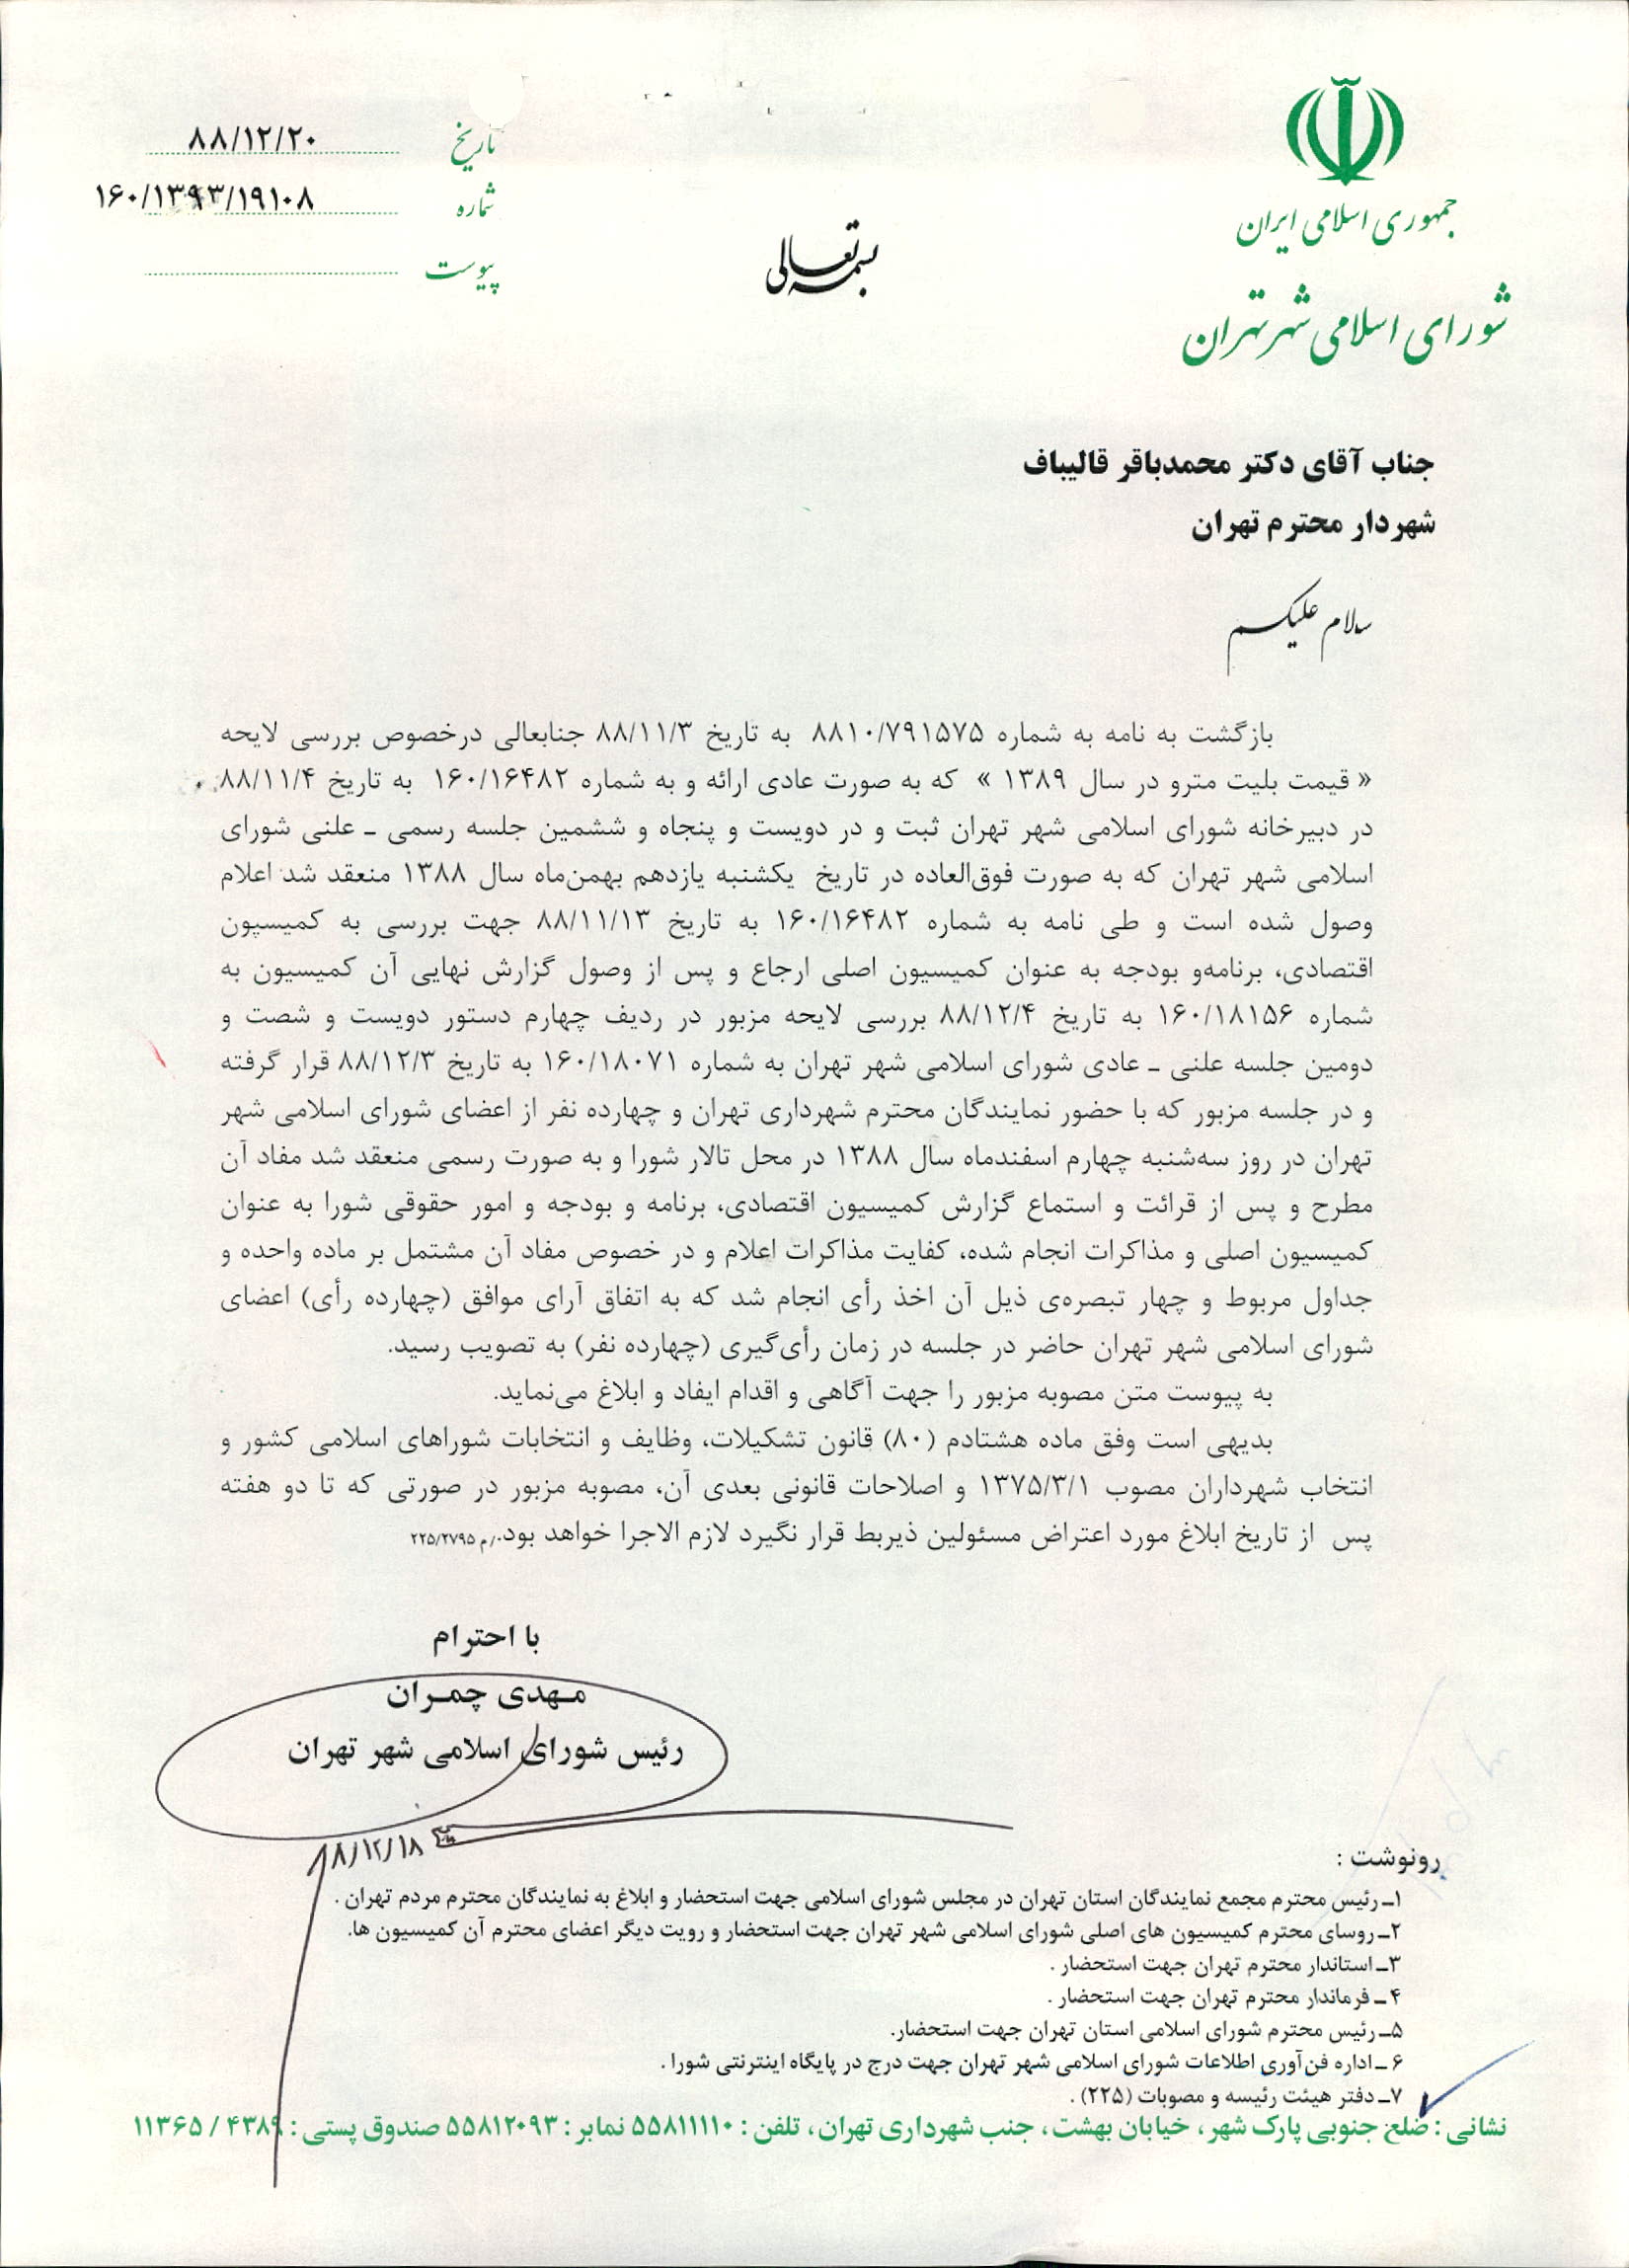 جمهوری اسلامی ایران
شورای اسلامی شهر تهران
بسمه تعالی
تاریخ ۸۸/۱۲/۲۰
شماره ۱۶۰/۱۳۹۳/۱۹۱۰۸
پیوست
جناب آقای دکتر محمدباقر قالیباف
شهردار محترم تهران
سلام علیکم
بازگشت به نامه به شماره ۸۸۱۰/۷۹۱۵۷۵ به تاریخ ۸۸/۱۱/۳ جنابعالی درخصوص بررسی لایحه
« قیمت بلیت مترو در سال ۱۳۸۹ » که به صورت عادی ارائه و به شماره ۱۶۰/۱۶۴۸۲ به تاریخ ۸۸/۱۱/۴
در دبیرخانه شورای اسلامی شهر تهران ثبت و در دویست و پنجاه و ششمین جلسه رسمی ـ علنی شورای
اسلامی شهر تهران که به صورت فوق‌العاده در تاریخ یکشنبه یازدهم بهمن‌ماه سال ۱۳۸۸ منعقد شد اعلام
وصول شده است و طی نامه به شماره ۱۶۰/۱۶۴۸۲ به تاریخ ۸۸/۱۱/۱۳ جهت بررسی به کمیسیون
اقتصادی، برنامه‌و بودجه به عنوان کمیسیون اصلی ارجاع و پس از وصول گزارش نهایی آن کمیسیون به
شماره ۱۶۰/۱۸۱۵۶ به تاریخ ۸۸/۱۲/۴ بررسی لایحه مزبور در ردیف چهارم دستور دویست و شصت و
دومین جلسه علنی ـ عادی شورای اسلامی شهر تهران به شماره ۱۶۰/۱۸۰۷۱ به تاریخ ۸۸/۱۲/۳ قرار گرفته
و در جلسه مزبور که با حضور نمایندگان محترم شهرداری تهران و چهارده نفر از اعضای شورای اسلامی شهر
تهران در روز سه‌شنبه چهارم اسفندماه سال ۱۳۸۸ در محل تالار شورا و به صورت رسمی منعقد شد مفاد آن
مطرح و پس از قرائت و استماع گزارش کمیسیون اقتصادی، برنامه و بودجه و امور حقوقی شورا به عنوان
کمیسیون اصلی و مذاکرات انجام شده، کفایت مذاکرات اعلام و در خصوص مفاد آن مشتمل بر ماده واحده و
جداول مربوط و چهار تبصره‌ی ذیل آن اخذ رأی انجام شد که به اتفاق آرای موافق (چهارده رأی) اعضای
شورای اسلامی شهر تهران حاضر در جلسه در زمان رأی‌گیری (چهارده نفر) به تصویب رسید.
به پیوست متن مصوبه مزبور را جهت آگاهی و اقدام ایفاد و ابلاغ می‌نماید.
بدیهی است وفق ماده هشتادم (۸۰) قانون تشکیلات، وظایف و انتخابات شوراهای اسلامی کشور و
انتخاب شهرداران مصوب ۱۳۷۵/۳/۱ و اصلاحات قانونی بعدی آن، مصوبه مزبور در صورتی که تا دو هفته
پس از تاریخ ابلاغ مورد اعتراض مسئولین ذیربط قرار نگیرد لازم الاجرا خواهد بود./م ۲۲۵/۲۷۹۵
با احترام
مهدی چمران
رئیس شورای اسلامی شهر تهران
۸۸/۱۲/۱۸
رونوشت :
۱ـ رئیس محترم مجمع نمایندگان استان تهران در مجلس شورای اسلامی جهت استحضار و ابلاغ به نمایندگان محترم مردم تهران .
۲ـ روسای محترم کمیسیون های اصلی شورای اسلامی شهر تهران جهت استحضار و رویت دیگر اعضای محترم آن کمیسیون ها.
۳ـ استاندار محترم تهران جهت استحضار .
۴ـ فرماندار محترم تهران جهت استحضار .
۵ـ رئیس محترم شورای اسلامی استان تهران جهت استحضار.
۶ـ اداره فن‌آوری اطلاعات شورای اسلامی شهر تهران جهت درج در پایگاه اینترنتی شورا .
۷ـ دفتر هیئت رئیسه و مصوبات (۲۲۵) .
نشانی : ضلع جنوبی پارک شهر ، خیابان بهشت ، جنب شهرداری تهران ، تلفن : ۵۵۸۱۱۱۱۰ نمابر : ۵۵۸۱۲۰۹۳ صندوق پستی : ۴۳۸۹ / ۱۱۳۶۵